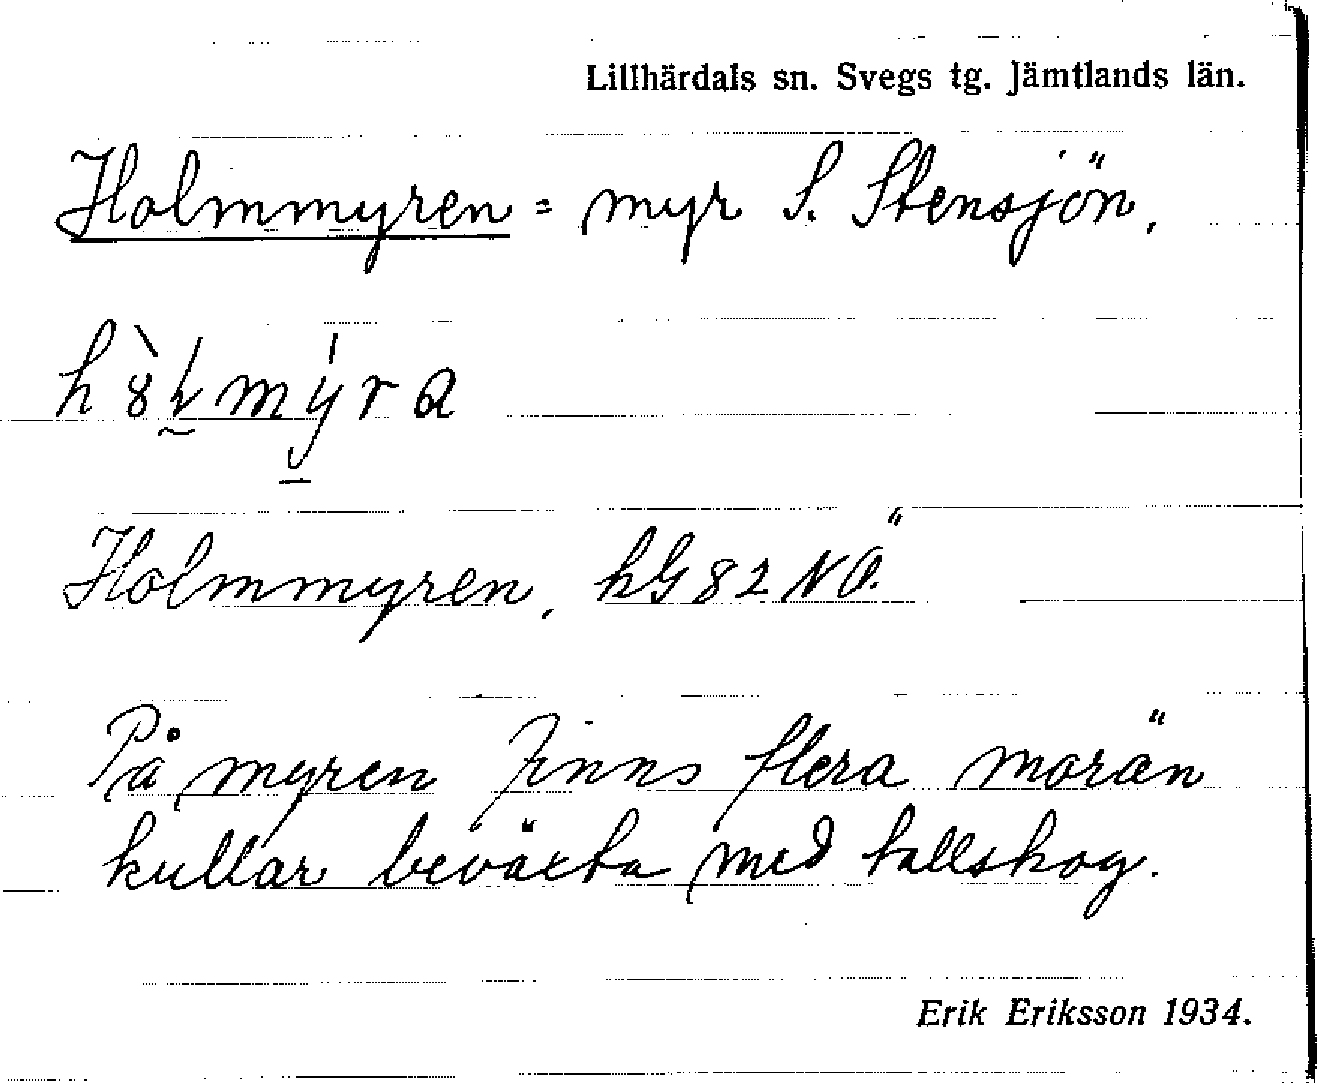 Lillhärdals sn. Svegs tg. Jämtlands län.
Holmmyren = myr S. Stensjön.
Holmmyren, hG82NÖ.
På myren finns flera morän
kullar beväxta med tallskog.
Erik Eriksson 1934.